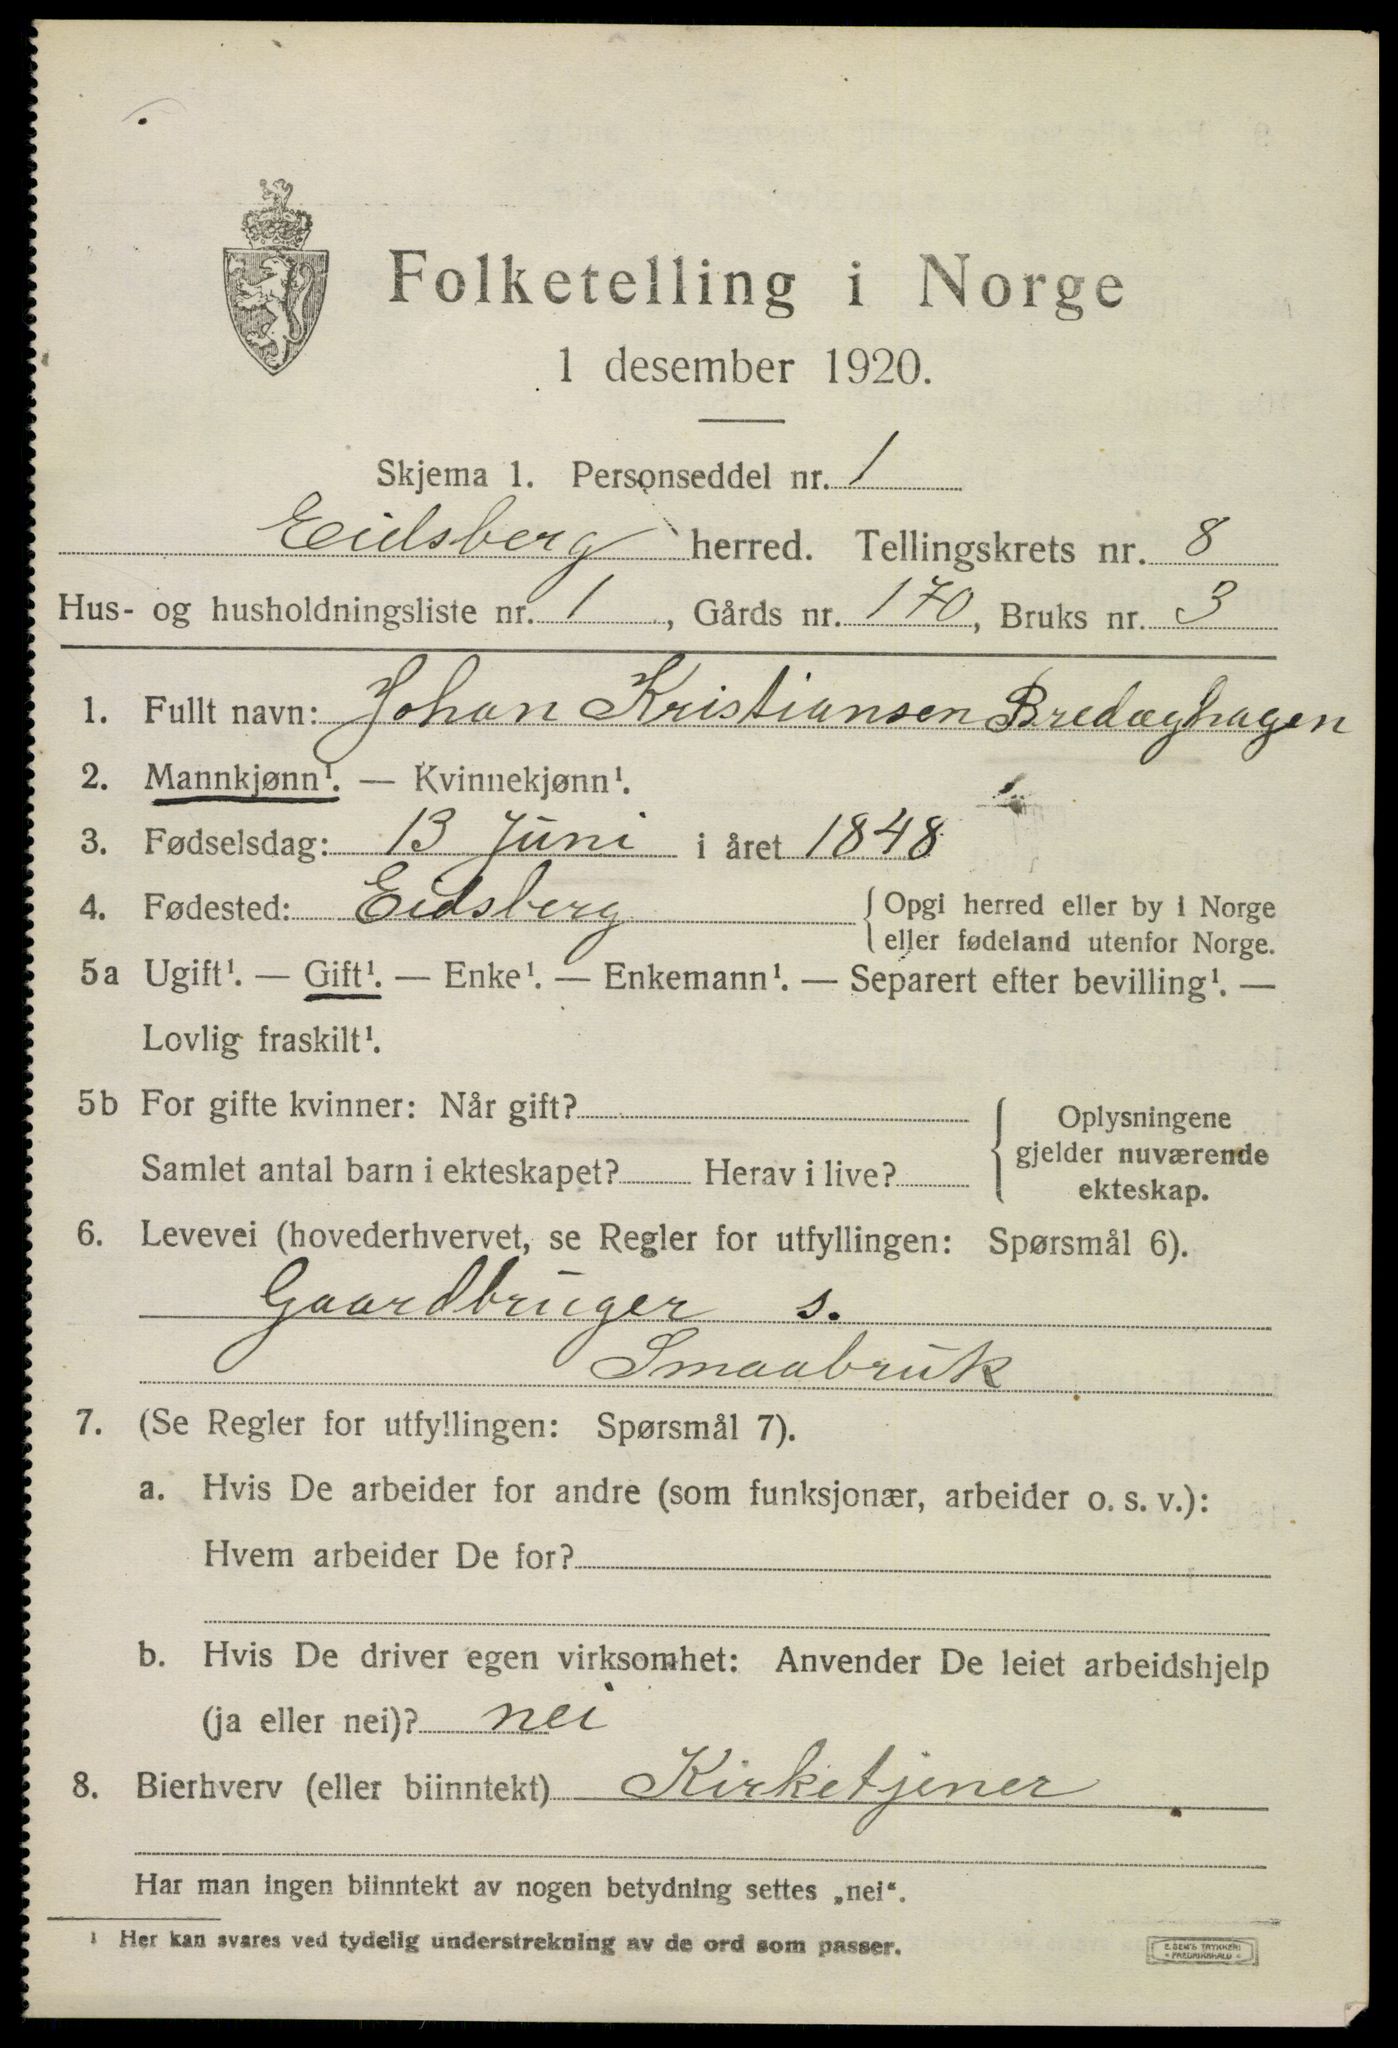 Folketelling i Norge
1 desember 1920.
Skjema 1. Personseddel nr. 1
Eidsberg herred. Tellingskrets nr. 8
Hus- og husholdningsliste nr. 1, Gårds nr. 170, Bruks nr. 3
1. Fullt navn: Johan Kristiansen Bredæghagen
2. Mannkjønn¹. — Kvinnekjønn¹.
3. Fødselsdag: 13 Juni i året 1848
4. Fødested: Eidsberg { Opgi herred eller by i Norge
eller fødeland utenfor Norge.
5a Ugift¹. — Gift¹. — Enke¹. — Enkemann¹. — Separert efter bevilling¹. —
Lovlig fraskilt¹.
5b For gifte kvinner: Når gift? { Oplysningene
gjelder nuværende
Samlet antal barn i ekteskapet? Herav i live?
ekteskap.
6. Levevei (hovederhvervet, se Regler for utfyllingen: Spørsmål 6).
Gaardbruger s.
Smaabruk
7. (Se Regler for utfyllingen: Spørsmål 7).
a. Hvis De arbeider for andre (som funksjonær, arbeider o. s. v.):
Hvem arbeider De for?
b. Hvis De driver egen virksomhet: Anvender De leiet arbeidshjelp
(ja eller nei)? nei
8. Bierhverv (eller biinntekt) Kirketjener
Har man ingen biinntekt av nogen betydning settes „nei“.
¹ Her kan svares ved tydelig understrekning av de ord som passer.
E. SEM'S TRYKKERI
FREDRIKSHALD